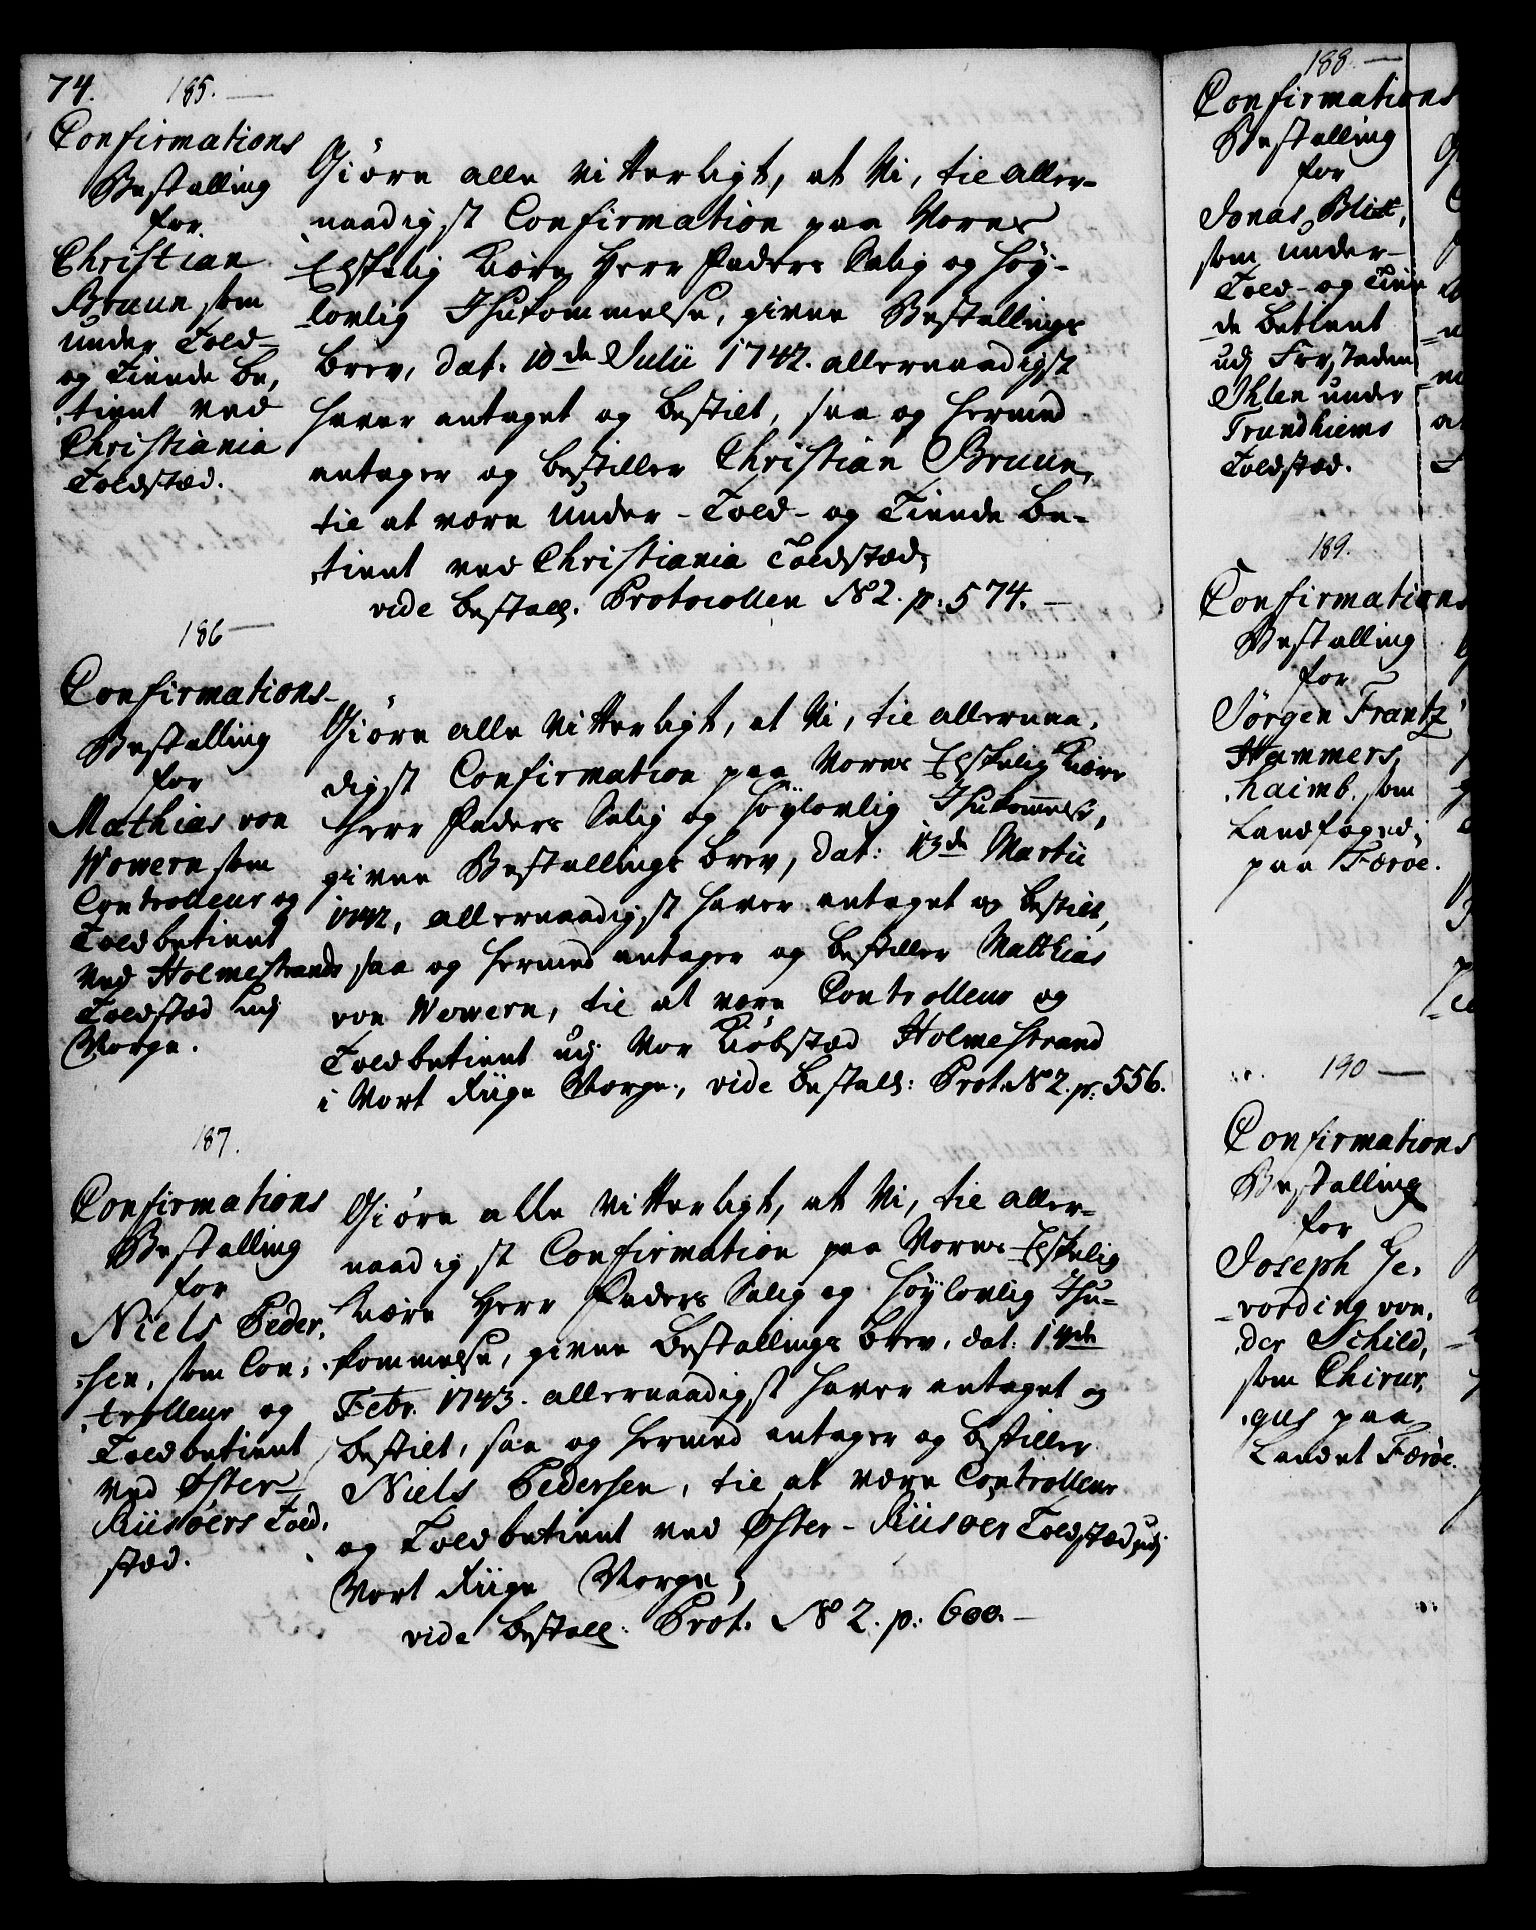 74.
185.
Confirmations
Bestalling
for
Christian
Bruun som
under Told-
og Tiende Be,
tient ved
Christiania
Toldstæd.
Giöre alle Vitterligt, at Vi, til aller-
naadigst Confirmation paa Vores
Elskelig Kiære Herr Faders Salig og Höy-
lovlig Ihukommelse, givne Bestallings
Brev, dat. 10de Julii 1742. allernaadigst
haver antaget og bestilt, saa og hermed
antager og bestiller Christian Bruun,
til at være Under-Told- og Tiende Be-
tient ved Christiania Toldstæd,
vide bestall. Protocollen No 2. p. 574.
186
Confirmations-
Bestalling
for
Mathias von
Wowern som
Controlleur og
Toldbetient
ved Holmestrands
Toldstæd udj
Norge.
Giöre alle Vitterligt, at Vi, til allernaa,
digst Confirmation paa Vores Elskelig Kiære
Herr Faders Salig og Höylovlig Ihukommelse,
givne Bestallings Brev, dat: 13de Martii
1742, allernaadigst haver antaget og bestilt,
saa og hermed antager og bestiller Matthias
von Wowern, til at være Controlleur og
Toldbetient udj Vor Kiöbstæd Holmestrand
i Vort Riige Norge, vide bestall: Prot. No 2. p: 556.
187.
Confirmations
Bestalling
for
Niels Peder,
sen, som Con,
trolleur og
Toldbetient
ved Öster-
Riisöers Told,
stæd.
Giöre alle Vitterligt, at Vi, til aller-
naadigst Confirmation paa Vores Elskelig
Kiære Herr Faders Salig og Höylovlig Ihu-
kommelse, givne Bestallings Brev, dat: 14de
Febr. 1743. allernaadigst haver antaget og
bestilt, saa og hermed antager og bestiller
Niels Pedersen, til at være Controlleur
og Toldbetient ved Öster-Riisöer Toldstæd udj
Vort Riige Norge,
vide bestall: Prot. No 2. p. 600.
188.
Confirmations
Bestalling
for
Jonas Blix,
som under-
Told- og Tien
de betient
udj Forstaden
Ihlen under
Trundhiems
Toldstæd.
189.
Confirmations
Bestalling
for
Jörgen Frantz
Hammers,
haimb, som
Landfoged,
paa Færöe.
190
Confirmations
Bestalling
for
Joseph Ge,
vording von,
der Schild,
som Chirur,
gus paa
Landet Færöe.